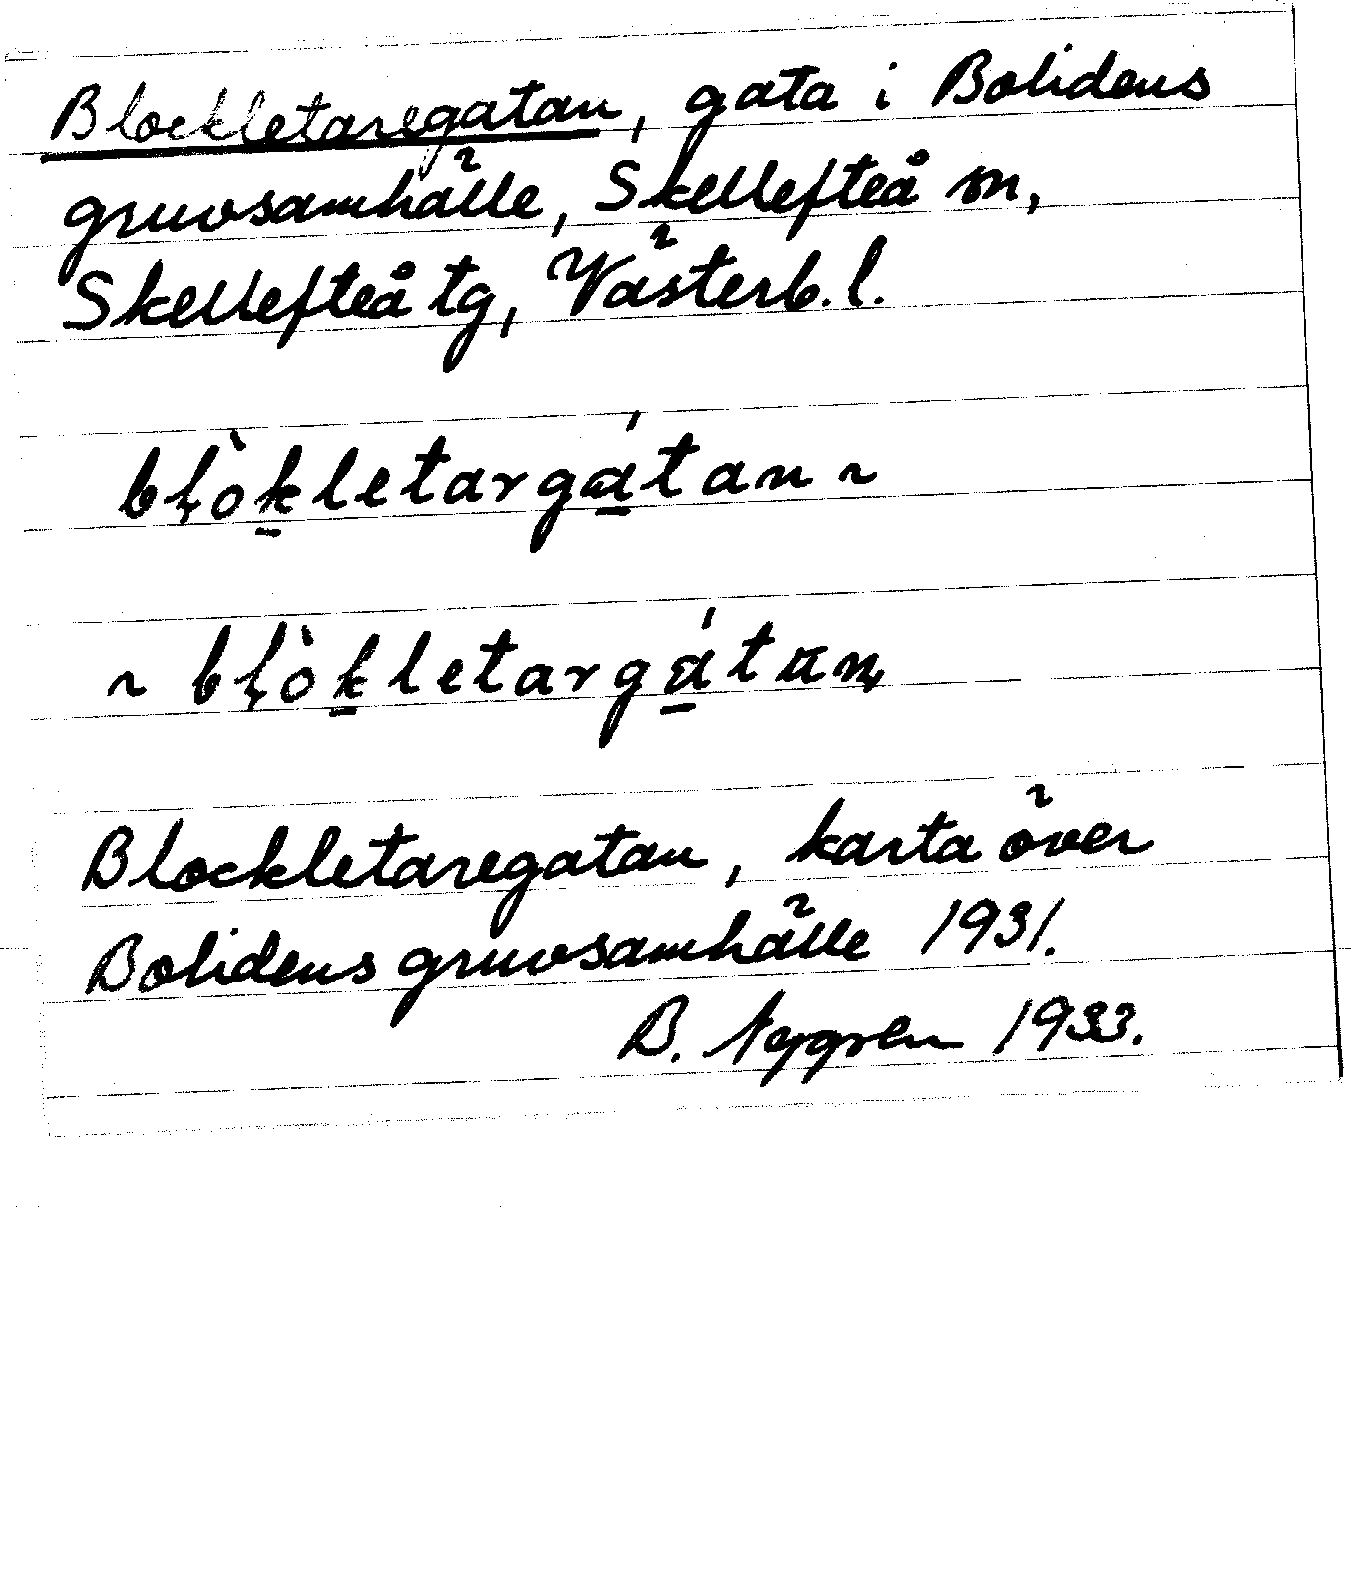 Blockletaregatan, gata i Bolidens
gruvsamhälle, Skellefteå sn,
Skellefteå tg, Västerb. l.
bḷòk̲letargá̲tan ~
~ bḷòk̲letargá̲tan
Blockletaregatan, karta över
Bolidens gruvsamhälle 1931.
B. Nygren 1933.